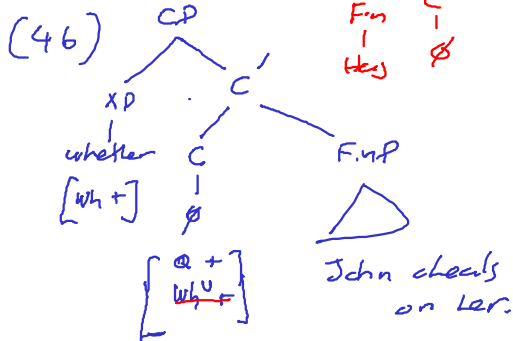 (46)
CP
Fin
C
Has
ø
XP
C'
whether
C
FinP
[Wh +]
ø
[Q +
Whᵁ +]
John cheats
on her.